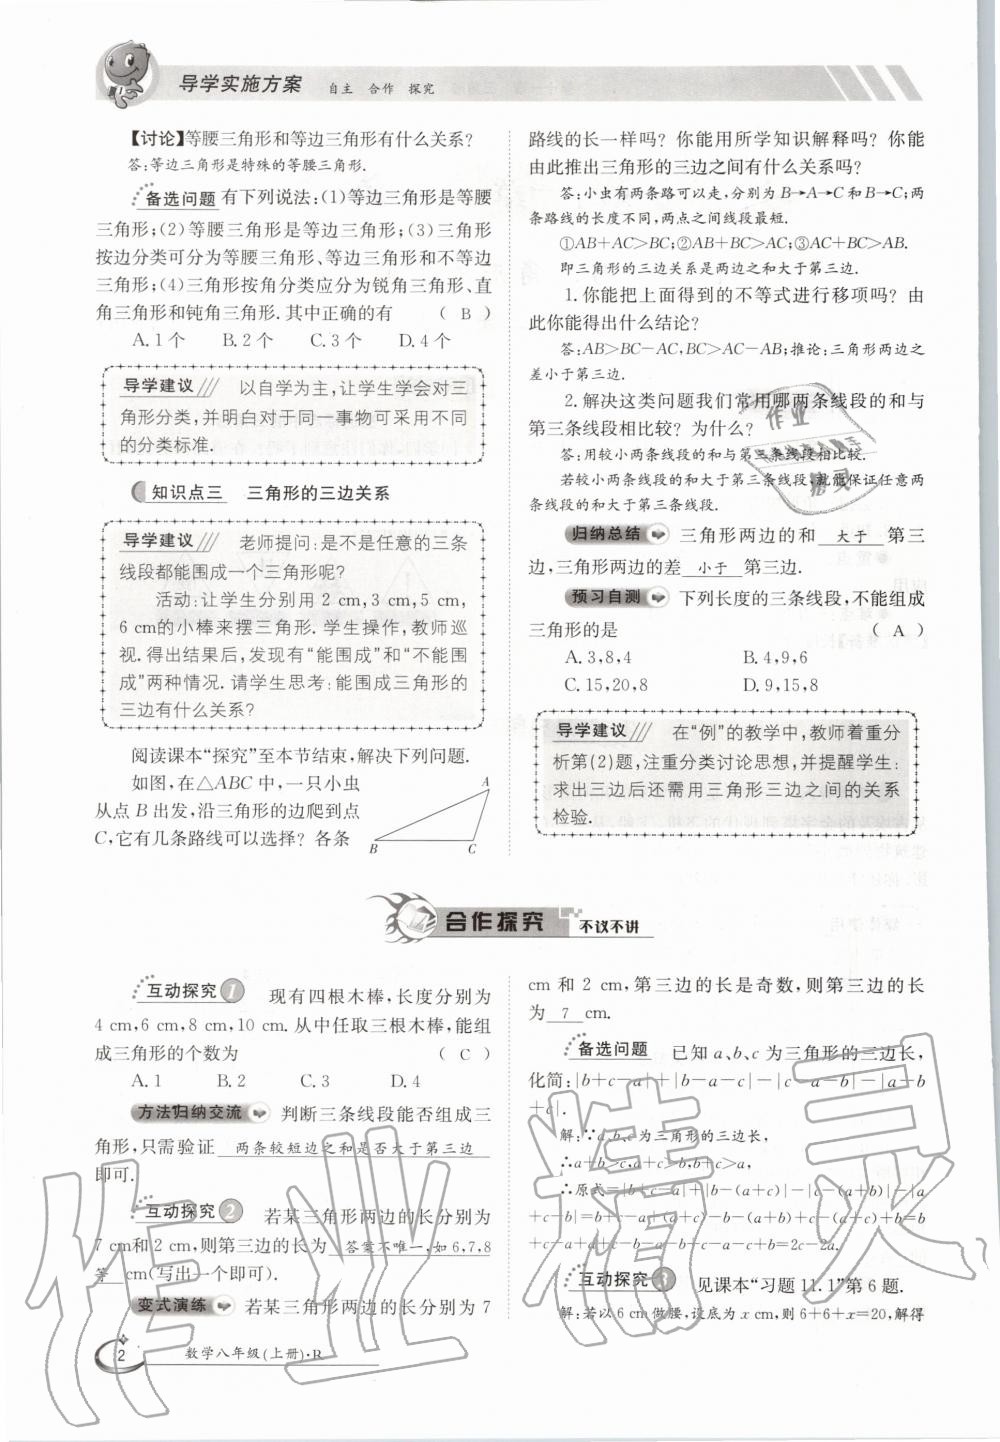 导学实施方案 自主 合作 探究
【讨论】等腰三角形和等边三角形有什么关系?
答:等边三角形是特殊的等腰三角形.
备选问题 有下列说法:(1)等边三角形是等腰
三角形;(2)等腰三角形是等边三角形;(3)三角形
按边分类可分为等腰三角形、等边三角形和不等边
三角形;(4)三角形按角分类应分为锐角三角形、直
角三角形和钝角三角形.其中正确的有 ( B )
A.1个 B.2个 C.3个 D.4个
导学建议 以自学为主,让学生学会对三
角形分类,并明白对于同一事物可采用不同
的分类标准.
知识点三 三角形的三边关系
导学建议 老师提问:是不是任意的三条
线段都能围成一个三角形呢?
活动:让学生分别用 2 cm,3 cm,5 cm,
6 cm的小棒来摆三角形.学生操作,教师巡
视.得出结果后,发现有“能围成”和“不能围
成”两种情况.请学生思考:能围成三角形的
三边有什么关系?
阅读课本“探究”至本节结束,解决下列问题.
如图,在△ABC中,一只小虫
从点B出发,沿三角形的边爬到点
C,它有几条路线可以选择? 各条
A
B C
路线的长一样吗? 你能用所学知识解释吗? 你能
由此推出三角形的三边之间有什么关系吗?
答:小虫有两条路可以走,分别为B→A→C和B→C;两
条路线的长度不同,两点之间线段最短.
①AB+AC>BC;②AB+BC>AC;③AC+BC>AB.
即三角形的三边关系是两边之和大于第三边.
1.你能把上面得到的不等式进行移项吗? 由
此你能得出什么结论?
答:AB>BC-AC,BC>AC-AB;推论:三角形两边之
差小于第三边.
2.解决这类问题我们常用哪两条线段的和与
第三条线段相比较? 为什么?
答:用较小两条线段的和与第三条线段相比较.
若较小两条线段的和大于第三条线段,就能保证任意两
条线段的和大于第三条线段.
归纳总结 三角形两边的和 大于 第三
边,三角形两边的差 小于 第三边.
预习自测 下列长度的三条线段,不能组成
三角形的是 ( A )
A.3,8,4 B.4,9,6
C.15,20,8 D.9,15,8
导学建议 在“例”的教学中,教师着重分
析第(2)题,注重分类讨论思想,并提醒学生:
求出三边后还需用三角形三边之间的关系
检验.
合作探究 不议不讲
互动探究1 现有四根木棒,长度分别为
4 cm,6 cm,8 cm,10 cm.从中任取三根木棒,能组
成三角形的个数为 ( C )
A.1 B.2 C.3 D.4
方法归纳交流 判断三条线段能否组成三
角形,只需验证 两条较短边之和是否大于第三边
即可.
互动探究2 若某三角形两边的长分别为
7 cm和2 cm,则第三边的长为 答案不唯一,如6,7,8
等 cm(写出一个即可).
变式演练 若某三角形两边的长分别为 7
cm 和 2 cm,第三边的长是奇数,则第三边的长
为 7 cm.
备选问题 已知a、b、c为三角形的三边长,
化简:|b+c-a|+|b-a-c|-|c-a-b|-|a-b
+c|.
解:∵a,b,c为三角形的三边长,
∴a+b>c,a+c>b,b+c>a,
∴原式=|b+c-a|+|b-(a+c)|-|c-(a+b)|-|a
+c-b|=b+c-a+(a+c)-b-(a+b)+c-(a+c)+b=b
+c-a+a+c-b-a-b+c-a-c+b=2c-2a.
互动探究3 见课本“习题11.1”第6题.
解:若以6 cm做腰,设底为x cm,则6+6+x=20,解得
2 数学八年级(上册)·R
作业精灵